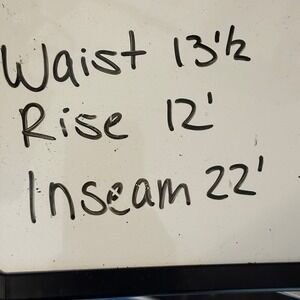 Waist 13'½
Rise 12'
Inseam 22'